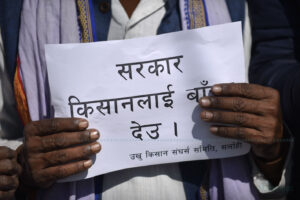 सरकार
किसानलाई
देउ ।
उखु किसान संघर्स समिति, सर्लाही